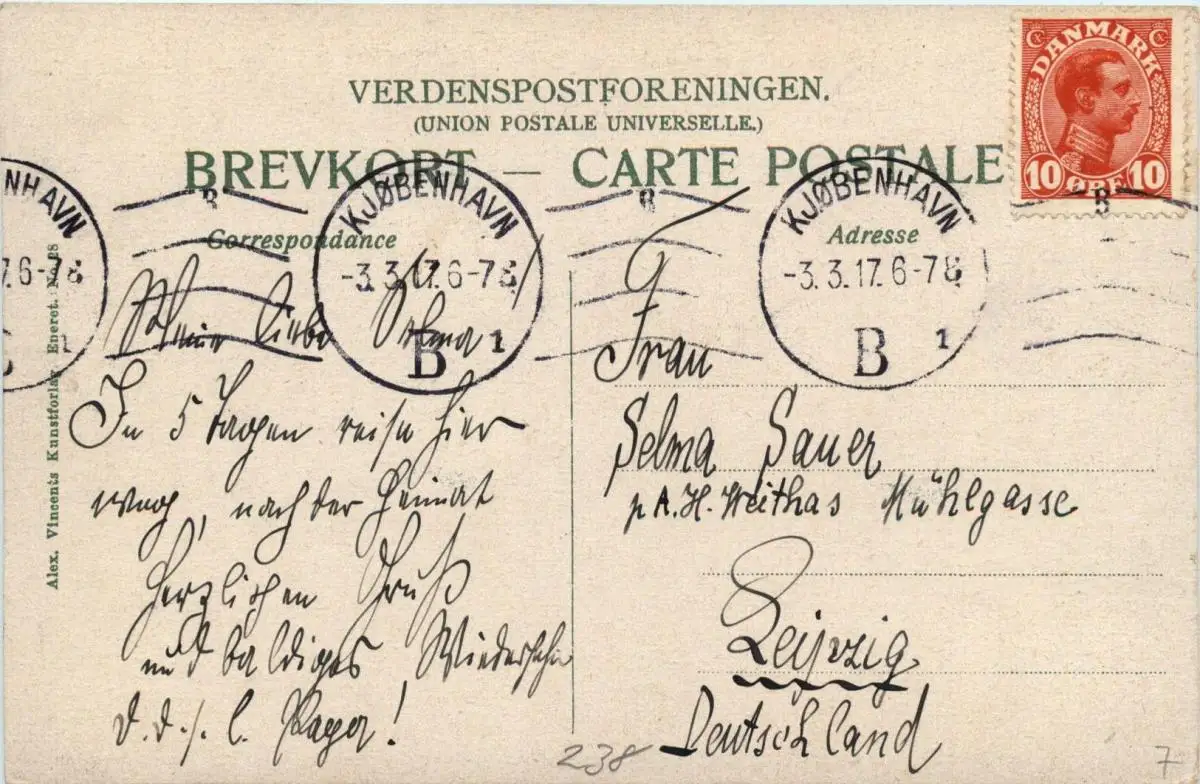 VERDENSPOSTFORENINGEN.
(UNION POSTALE UNIVERSELLE.)
BREVKORT — CARTE POSTALE
DANMARK
10 ØRE 10
Correspondance
Adresse
KJØBENHAVN
-3.3.17.6-7
B 1
KJØBENHAVN
-3.3.17.6-7
B 1
NHAVN
17.6-7
1
B
B
B
Alex. Vincents Kunstforlag Eneret. No.
Meine liebe Selma!
In 5 Tagen reise hier
weg, nach der Heimat
Herzlichen Gruß
und baldiges Wiedersehn
d. d. l.
Frau
Selma Sauer
p A. H. Weithas Mühlgasse
Leipzig
Deutschland
238
7